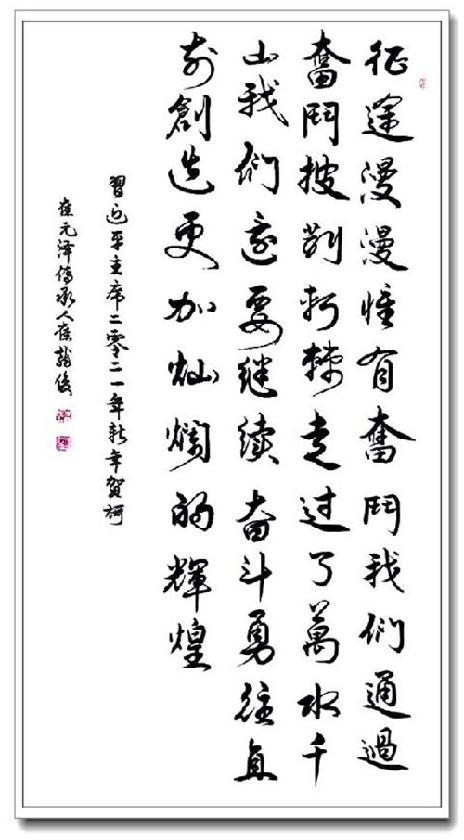 征途漫漫惟有奮鬥我们通過
奮鬥披荆斩棘走过了萬水千
山我们还要继续奋斗勇往直
前創造更加灿爛的輝煌
習近平主席二零二一年新年贺词
崔元泽傳承人崔